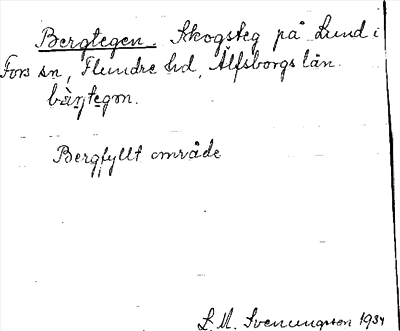 Bergtegen. Skogsteg på Lund i
Fors sn, Flundre hd, Älfsborgs län.
bàŋtegɷn.
Bergfyllt område
L. M. Svenungsson 1934